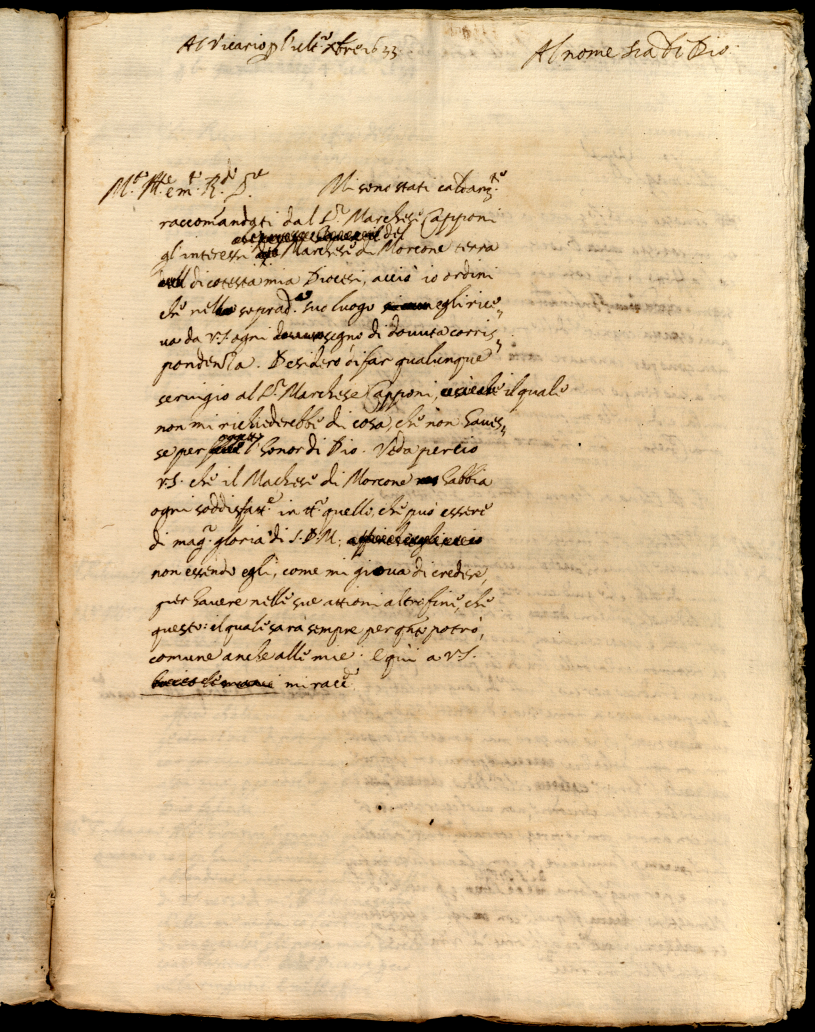 Al Vicario p l'ult.º Xbre 1633.
Al nome sia di Dio.
M.to Ill.e e m.to R.do S.re Mi sono stati caldam.te
raccomandati dal S.r Marchese Capponi
gl'interessi del Marchese di Morcone terra
di cotesta mia Diocesi, acciò io ordini
che nel soprad.º suo luogo egli rice,,
va da V.S. ogni segno di dovuta corris,,
pondenza. Desidero di far qualunque
servigio al S.r Marchese Capponi, il quale
non mi richiederebbe di cosa, che non haves,,
se per l'honor di Dio. Veda perciò
V.S. che il Machese di Morcone habbia
ogni soddisfatt.e in tt.º quello, che può essere
di mag.r gloria di S.D.M.
non essendo egli, come mi giova di credere,
per havere nelle sue attioni altro fine, che
questo: il quale sarà sempre per q.to potrò,
comune anche alle mie. E qui a V.S.
mi racc.do